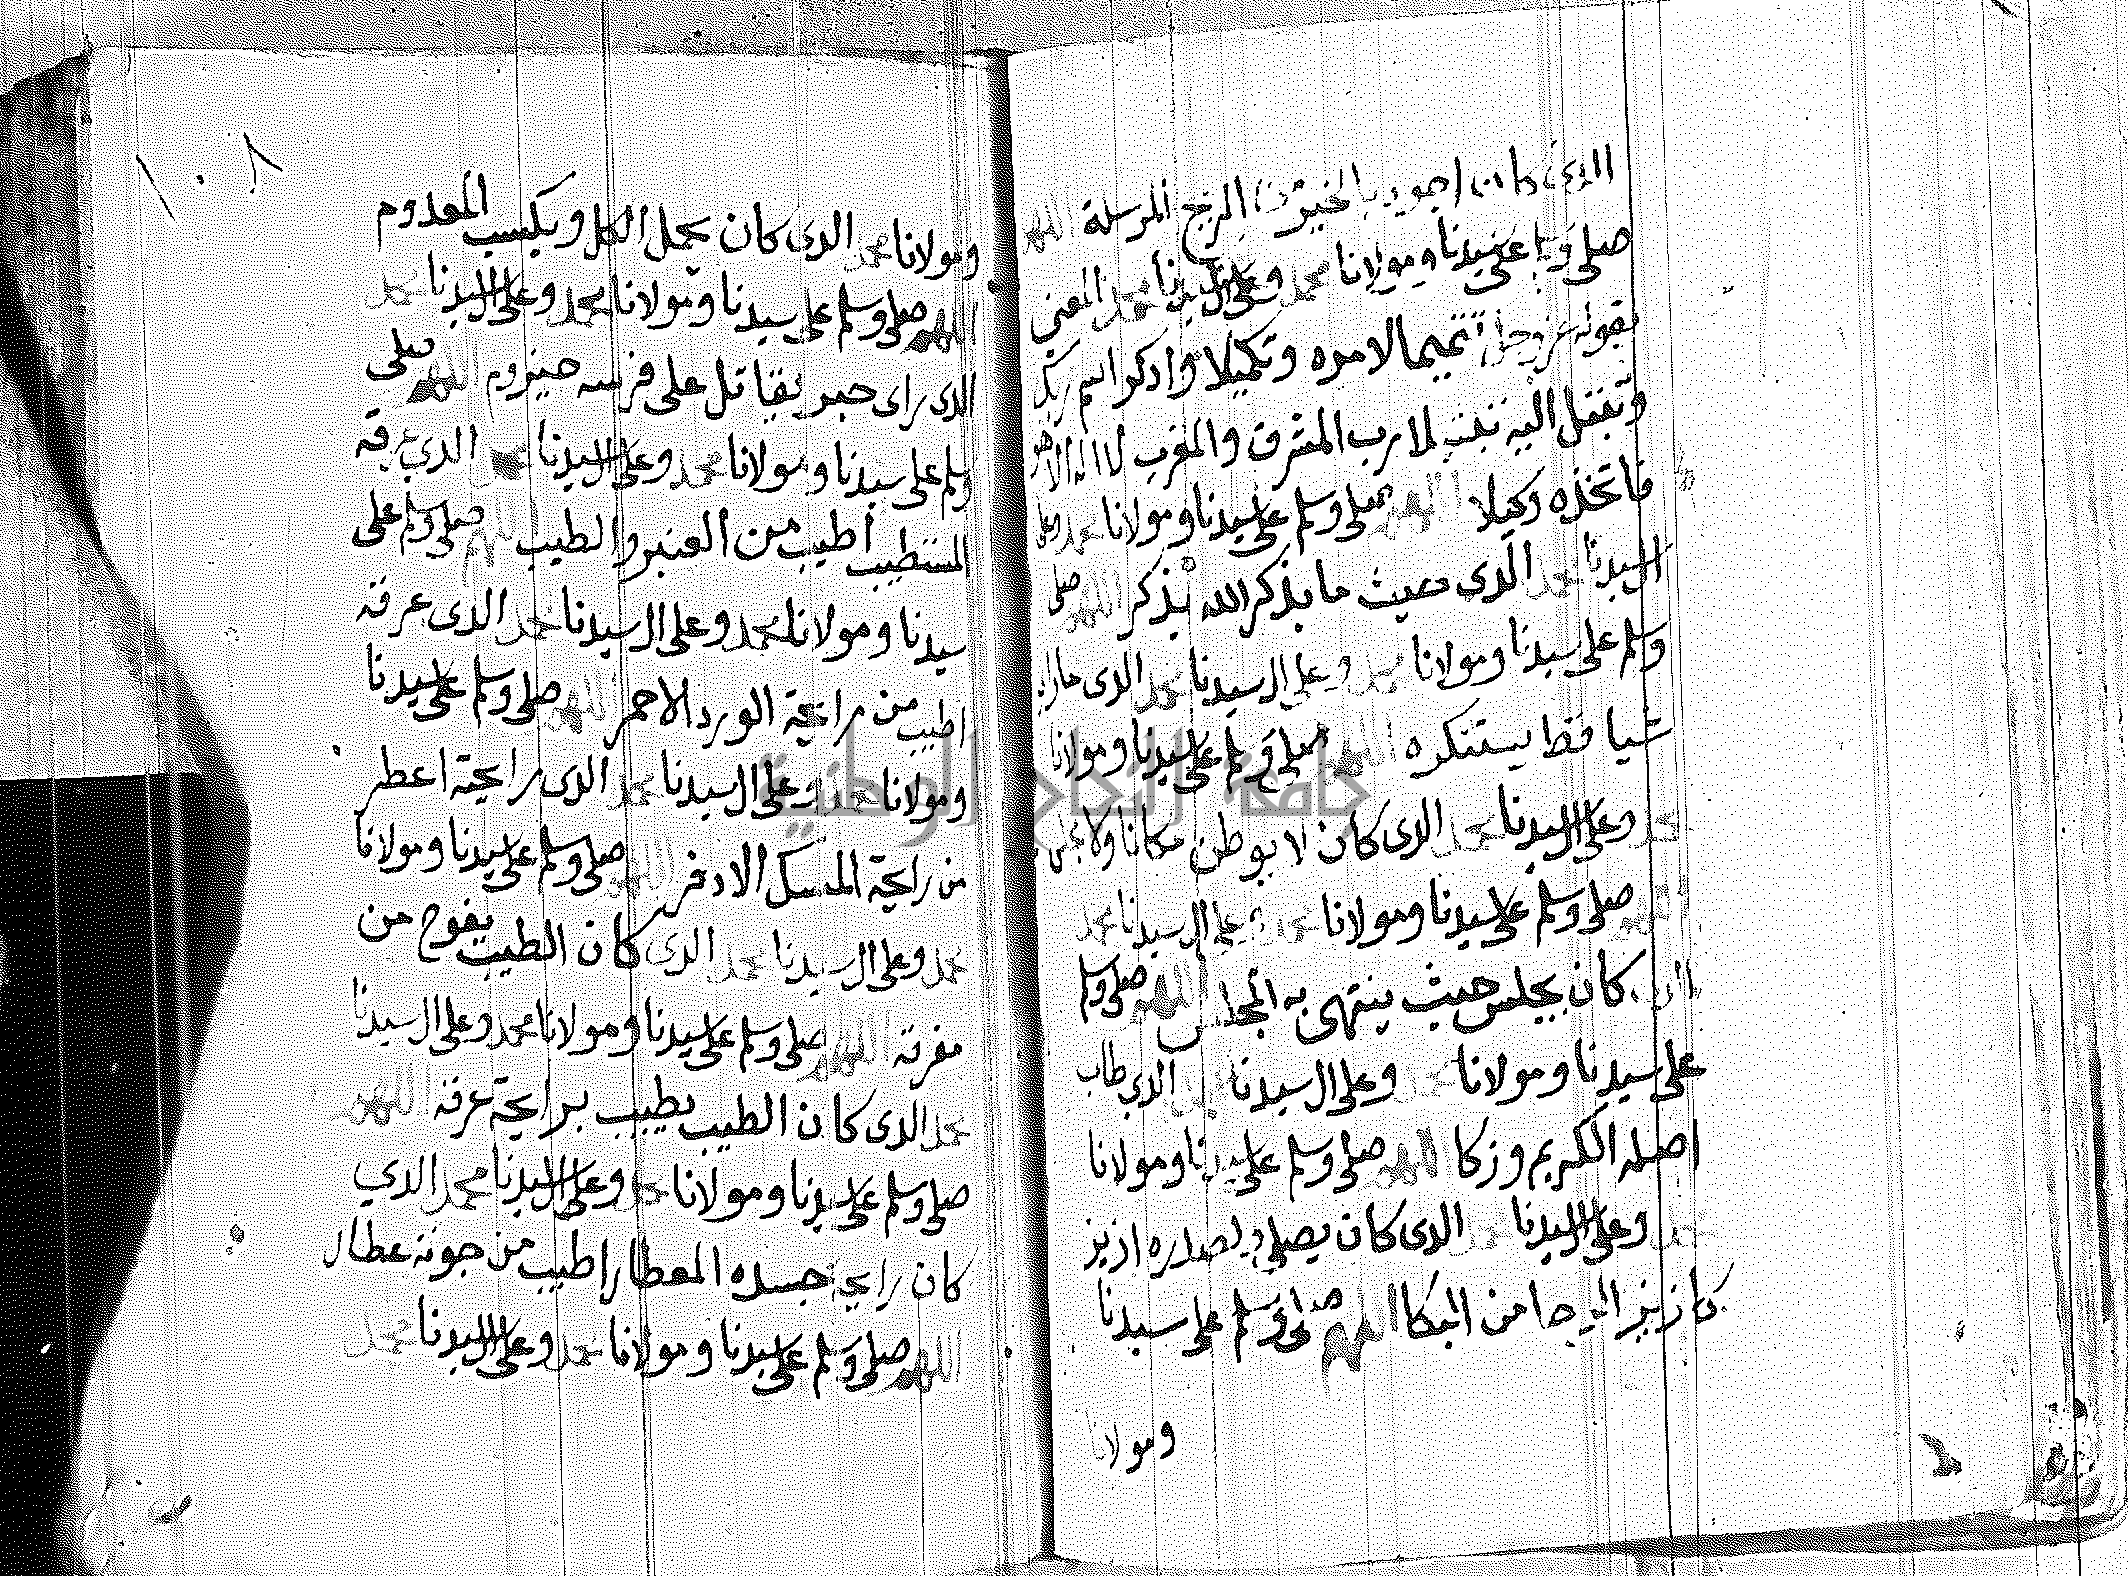 الذى كان اجود بالخير من الريح المرسلة اللهم
صلى وسلم على سيدنا ومولانا محمد وعلى ال سيدنا محمد المعنى
بقوله عز وجل تتميما لامره وتكميلا واذكر اسم ربك
وتبتل اليه تبتيلا رب المشرق والمغرب لا اله الا هو
فاتخذه وكيلا اللهم صلى وسلم على سيدنا ومولانا محمد وعلى
ال سيدنا محمد الذى حيث ما يذكر الله يذكر اللهم صلى
وسلم على سيدنا ومولانا محمد وعلى ال سيدنا محمد الذى
شيا قط يستنكره اللهم صلى وسلم على سيدنا ومولانا
محمد وعلى ال سيدنا محمد الذى كان لا يوطن مكانا ولا
اللهم صلى وسلم على سيدنا ومولانا محمد وعلى ال سيدنا محمد
الذى كان يجلس حيث ينتهى به المجلس اللهم صلى وسلم
على سيدنا ومولانا محمد وعلى ال سيدنا محمد الذي طاب
اصله الكريم وزكا اللهم صلى وسلم على سيدنا ومولانا
محمد وعلى ال سيدنا محمد الذى كان يصلي ولصدره ازيز
كازيز المرجل من البكا اللهم صلى وسلم على سيدنا
ومولانا
١٠٨
ومولانا محمد الذى كان يحمل الكل ويكسب المعدوم
اللهم صلى وسلم على سيدنا ومولانا محمد وعلى ال سيدنا محمد
الذى راى جبريقاتل على فرسه حيزوم اللهم صلى
وسلم على سيدنا ومولانا محمد وعلى ال سيدنا محمد الذي عرقه
المستطيب اطيب من العنبر والطيب اللهم صلى وسلم على
سيدنا ومولانا محمد وعلى ال سيدنا محمد الذى عرقه
اطيب من رايحة الورد الاحمر اللهم صلى وسلم على سيدنا
ومولانا محمد وعلى ال سيدنا محمد الذى رايحته اعطر
من رايحة المسك الاذفر اللهم صلى وسلم على سيدنا ومولانا
محمد وعلى ال سيدنا محمد الذى كان الطيب يفوح من
مفرقه اللهم صلى وسلم على سيدنا ومولانا محمد وعلى ال سيدنا
محمد الذى كان الطيب يطيب برايحة عرقه اللهم
صلى وسلم على سيدنا ومولانا محمد وعلى ال سيدنا محمد الذي
كان رايحة جسده المعطار اطيب من جونة عطار
اللهم صلى وسلم على سيدنا ومولانا محمد وعلى ال سيدنا محمد
جامعة النجاح الوطنية